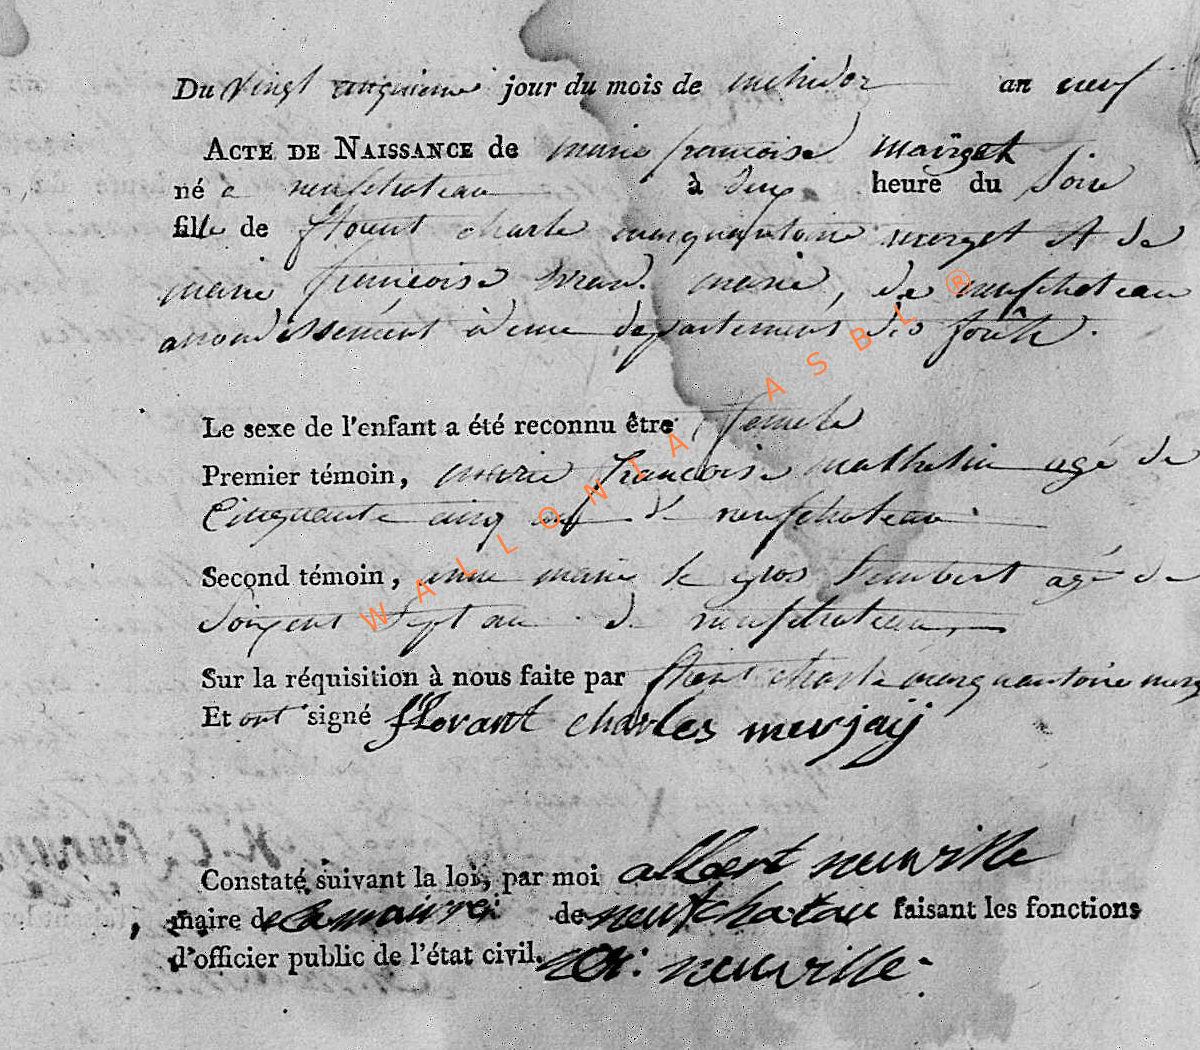 Du vingt cinquieme jour du mois de messidor an neuf
ACTE DE NAISSANCE de marie francoise mairget
né a neufchateau à deux heure du soire
fille de florent charle merget et de
marie francoise marié, de neufchateau
arrondissement departement des forêts.
Le sexe de l'enfant a été reconnu être femele
Premier témoin, marie francoise mathelin agé de
Cinquante cinq ans de neufchateau
Second témoin, anne marie le gros lambert agé de
soixent sept an de neufchateau
Sur la réquisition à nous faite par florent charle
Et ont signé fflorant charles merjaÿ
Constaté suivant la loi, par moi albert neuville
maire de la mairrei de neufchatau faisant les fonctions
d'officier public de l'état civil. neuville.
WALLONIA ASBL ®